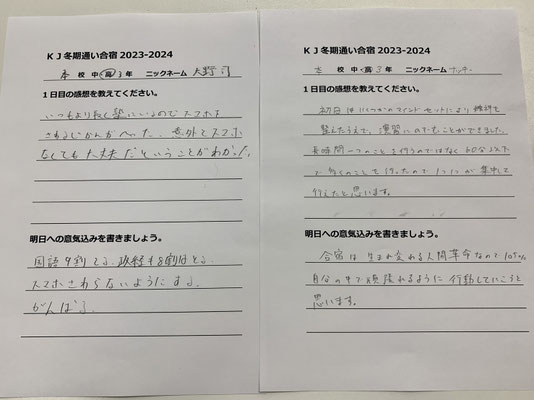 KJ冬期通い合宿 2023-2024
本 校 中・高 3 年 ニックネーム 大野 司
1日目の感想を教えてください。
いつもより長く塾にいるのでスマホを
さわるじかんがへった。意外とスマホ
なくても大丈夫だということがわかった。
明日への意気込みを書きましょう。
国語9割とる。政経も8割はとる。
スマホさわらないようにする。
がんばる。
KJ冬期通い合宿 2023-2024
本 校 中・高 3 年 ニックネーム ナッキー
1日目の感想を教えてください。
初日はいくつかのマインドセットにより精神を
整えたうえで、演習にのぞむことができました。
長時間一つのことを行うのではなく 60分以下
で多くのことを行ったので 1つ1つが集中して
行えたと思います。
明日への意気込みを書きましょう。
合宿は生まれ変わる人間革命なので
自分の中で頑張れるように行動していこうと
思います。